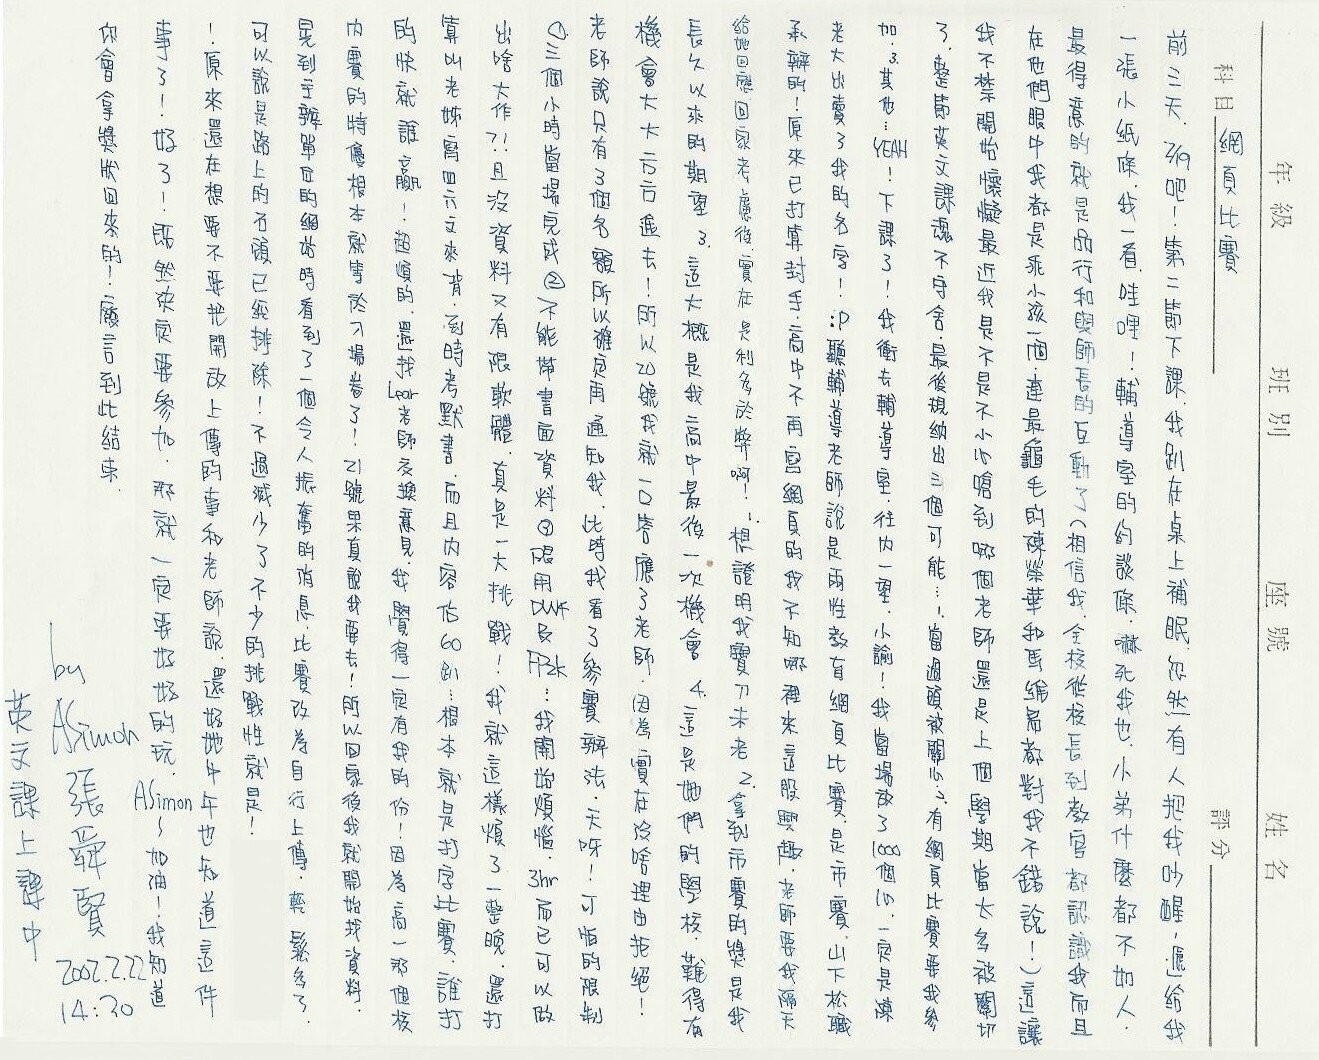 年級 班別 座號 姓名
科目 網頁比賽 評分
前三天，2/19吧！第二節下課，我趴在桌上補眠，忽然有人把我吵醒，遞給我
一張小紙條，我一看，哇哩！輔導室的約談條，嚇死我也，小弟什麼都不如人，
最得意的就是品行和與師長的互動了（相信我，全校從校長到教官都認識我而且
在他們眼中我都是乖小孩一個，連最龜毛的陳榮華和馬綸局都對我不錯說！）這讓
我不禁開始懷疑最近我是不是不小心嗆到哪個老師還是上個學期當太多被關切
了，整節英文課魂不守舍，最後規納出三個可能…1.當過頭被關心2.有網頁比賽要我參
加.3.其他…YEAH！下課了！我衝去輔導室，往內一望，小諭！我當場放了1000個心，一定是陳
老大出賣了我的名字！:P聽輔導老師說是兩性教育網頁比賽，是市賽，山下松職
承辦的！原來已打算封手，高中不再寫網頁的我不知哪裡來這股興趣，老師要我隔天
給她回應回家考慮後，實在是利多於弊啊！1.想證明我寶刀未老2.拿到市賽的獎是我
長久以來的期望 3.這大概是我高中最後一次機會 4.這是她們的學校，難得有
機會大大方方進去！所以20號我就一口答應了老師，因為實在沒啥理由拒絕！
老師說只有3個名額所以確定再通知我，此時我看了參賽辦法，天呀！可怕的限制
①三個小時當場完成②不能帶書面資料③限用DWF及FP2K…我開始煩惱，3hr而已可以做
出啥大作?!！且沒資料又有限軟體，真是一大挑戰！我就這樣煩了一整晚，還打
算叫老姊寫四六文來背，到時考默書，而且內容佔60趴…根本就是打字比賽，誰打
的快就誰贏！超煩的，還找Lear老師交換意見，我覺得一定有我的份！因為高一那個校
內賽的特優根本就等於刀場卷了！21號果真說我要去！所以回家後我就開始找資料，
晃到主辦單位的網站時看到了一個令人振奮的消息，比賽改為自行上傳，輕鬆多了，
可以說是路上的石頭已經排除！不過減少了不少的挑戰性就是！
！原來還在想要不要把開放上傳的事和老師說，還好她中午也知道這件
事了！好了！既然決定要參加，那就一定要好好的玩，ASimon～加油！我知道
你會拿獎狀回來的！廢言到此結束.
by ASimon
張舜賢 2002.2.22
14:30
英文課上課中